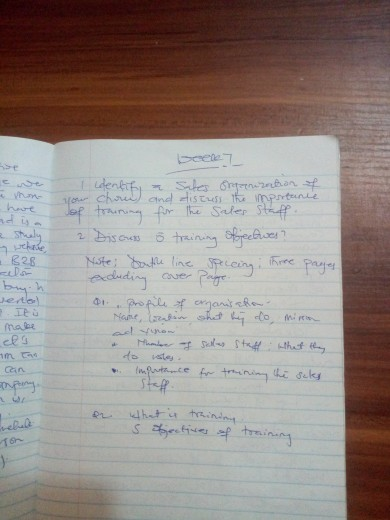 we
e we
have
ad is a
study
website,
B2B
It is
make
can
Week 7
1 identify a Sales Organization of
your choice and discuss the importance
of training for the Sales Staff.
2 Discuss 5 training Objectives?
Note; Double line spaceing, three pages
excluding cover Page.
Q1. profile of organisation.
Name, location what they do, mission
and vision
Number of sales staff; what they
do roles.
Importance for training the sales
Staff.
Q2. What is training
5 objectives of training